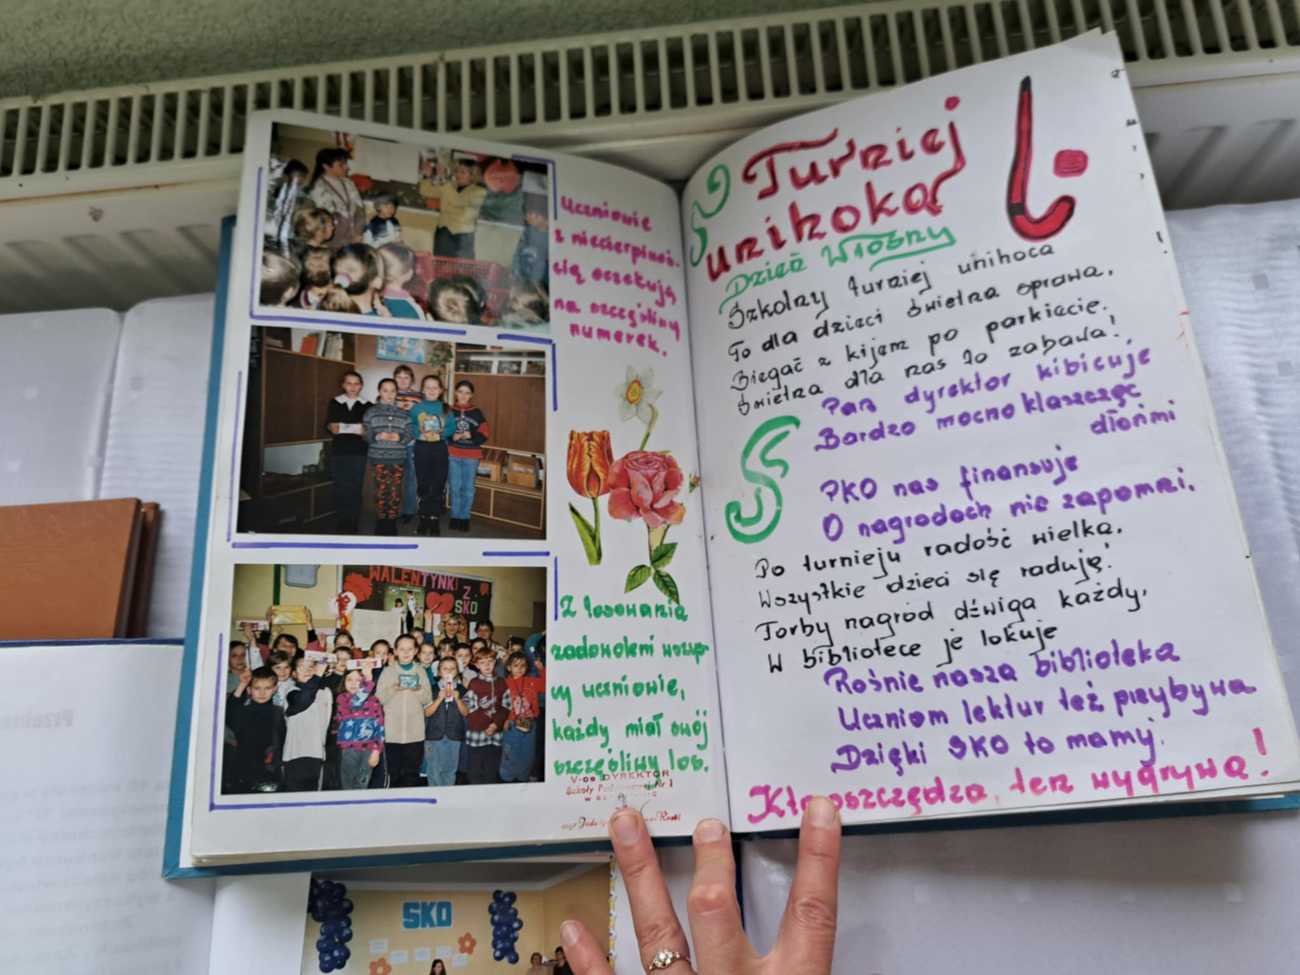 Uczniowie
z niecierpliwoś-
cią oczekują
na szczęśliwy
numerek.
WALENTYNKI
Z
SKO
Z losowania
zadowoleni wszys-
cy uczniowie,
każdy miał swój
szczęśliwy los.
DYREKTOR
Turniej
unihoka
Dzień Wiosny
Szkolny turniej unihoca
To dla dzieci świetna sprawa.
Biegać z kijem po parkiecie.
Świetna dla nas to zabawa!
Pan dyrektor kibicuje
Bardzo mocno klaszczęc
dłońmi
PKO nas finansuje
O nagrodach nie zapomni.
Po turnieju radość wielka.
Wszystkie dzieci się radują!
Torby nagród dźwiga każdy,
W bibliotece je lokuje
Rośnie nasza biblioteka
Uczniom lektur też przybywa
Dzięki SKO to mamy.
Kto oszczędza, ten wygrywa!
SKO